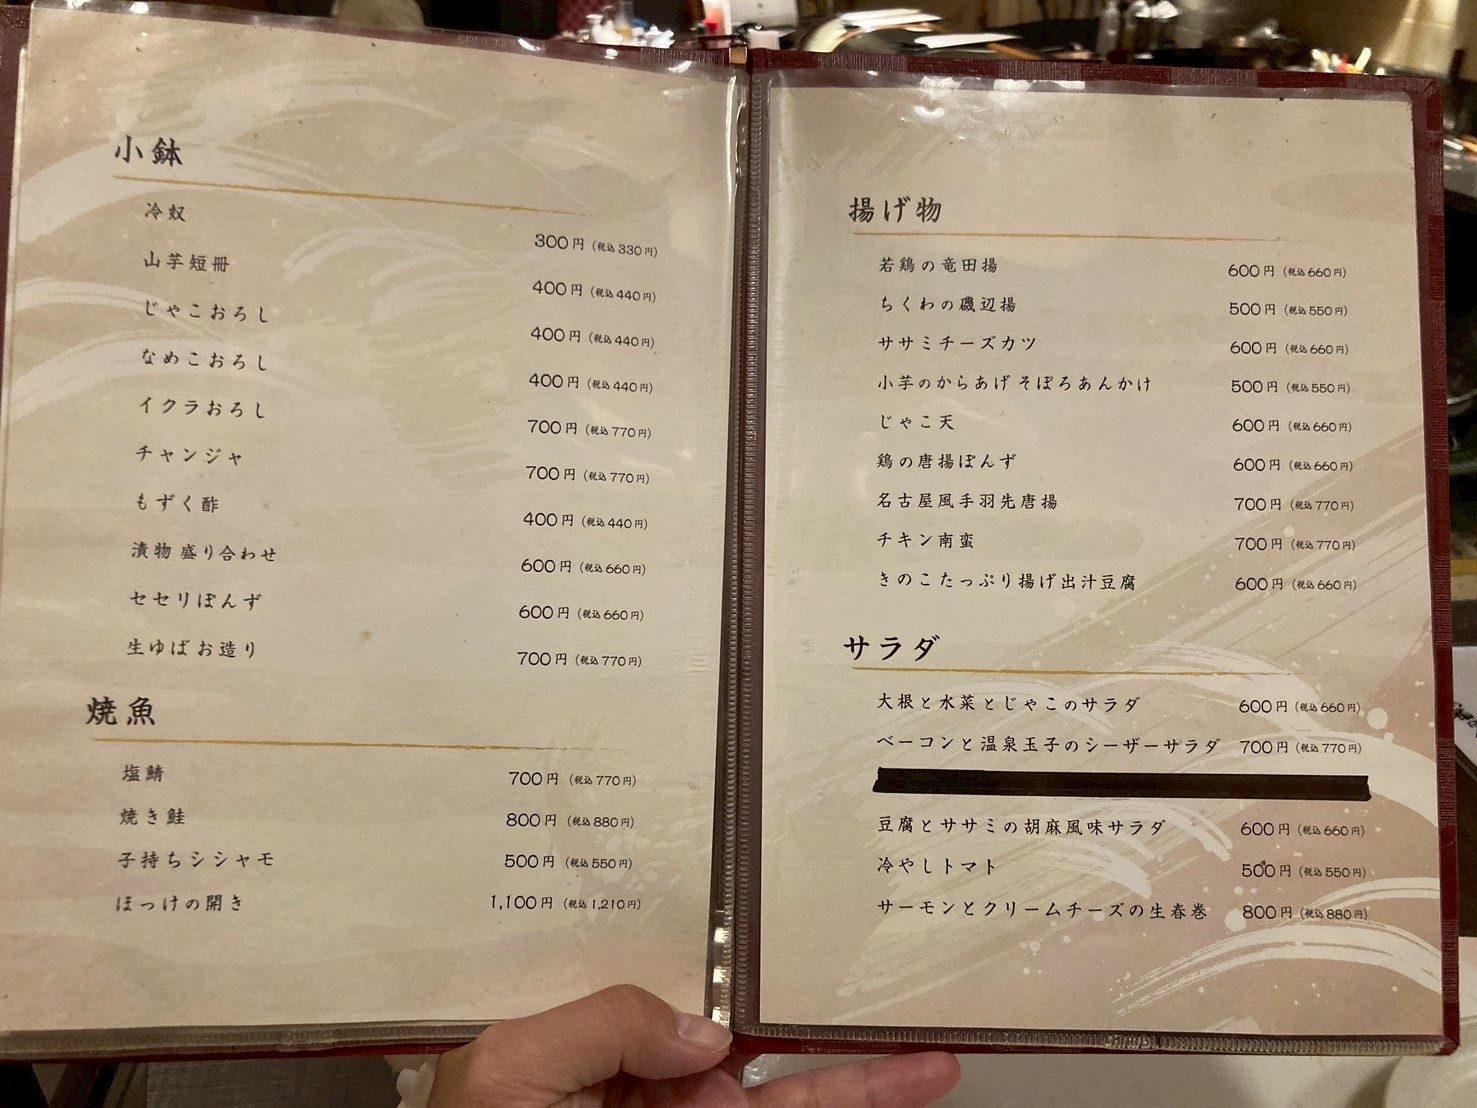 小鉢
冷奴 300円(税込330円)
山芋短冊 400円(税込440円)
じゃこおろし 400円(税込440円)
なめこおろし 400円(税込440円)
イクラおろし 700円(税込770円)
チャンジャ 700円(税込770円)
もずく酢 400円(税込440円)
漬物 盛り合わせ 600円(税込660円)
セセリぽんず 600円(税込660円)
生ゆばお造り 700円(税込770円)
焼魚
塩鯖 700円(税込770円)
焼き鮭 800円(税込880円)
子持ちシシャモ 500円(税込550円)
ほっけの開き 1,100円(税込1,210円)
揚げ物
若鶏の竜田揚 600円(税込660円)
ちくわの磯辺揚 500円(税込550円)
ササミチーズカツ 600円(税込660円)
小芋のからあげ そぼろあんかけ 500円(税込550円)
じゃこ天 600円(税込660円)
鶏の唐揚ぽんず 600円(税込660円)
名古屋風手羽先唐揚 700円(税込770円)
チキン南蛮 700円(税込770円)
きのこたっぷり揚げ出汁豆腐 600円(税込660円)
サラダ
大根と水菜とじゃこのサラダ 600円(税込660円)
ベーコンと温泉玉子のシーザーサラダ 700円(税込770円)
豆腐とササミの胡麻風味サラダ 600円(税込660円)
冷やしトマト 500円(税込550円)
サーモンとクリームチーズの生春巻 800円(税込880円)